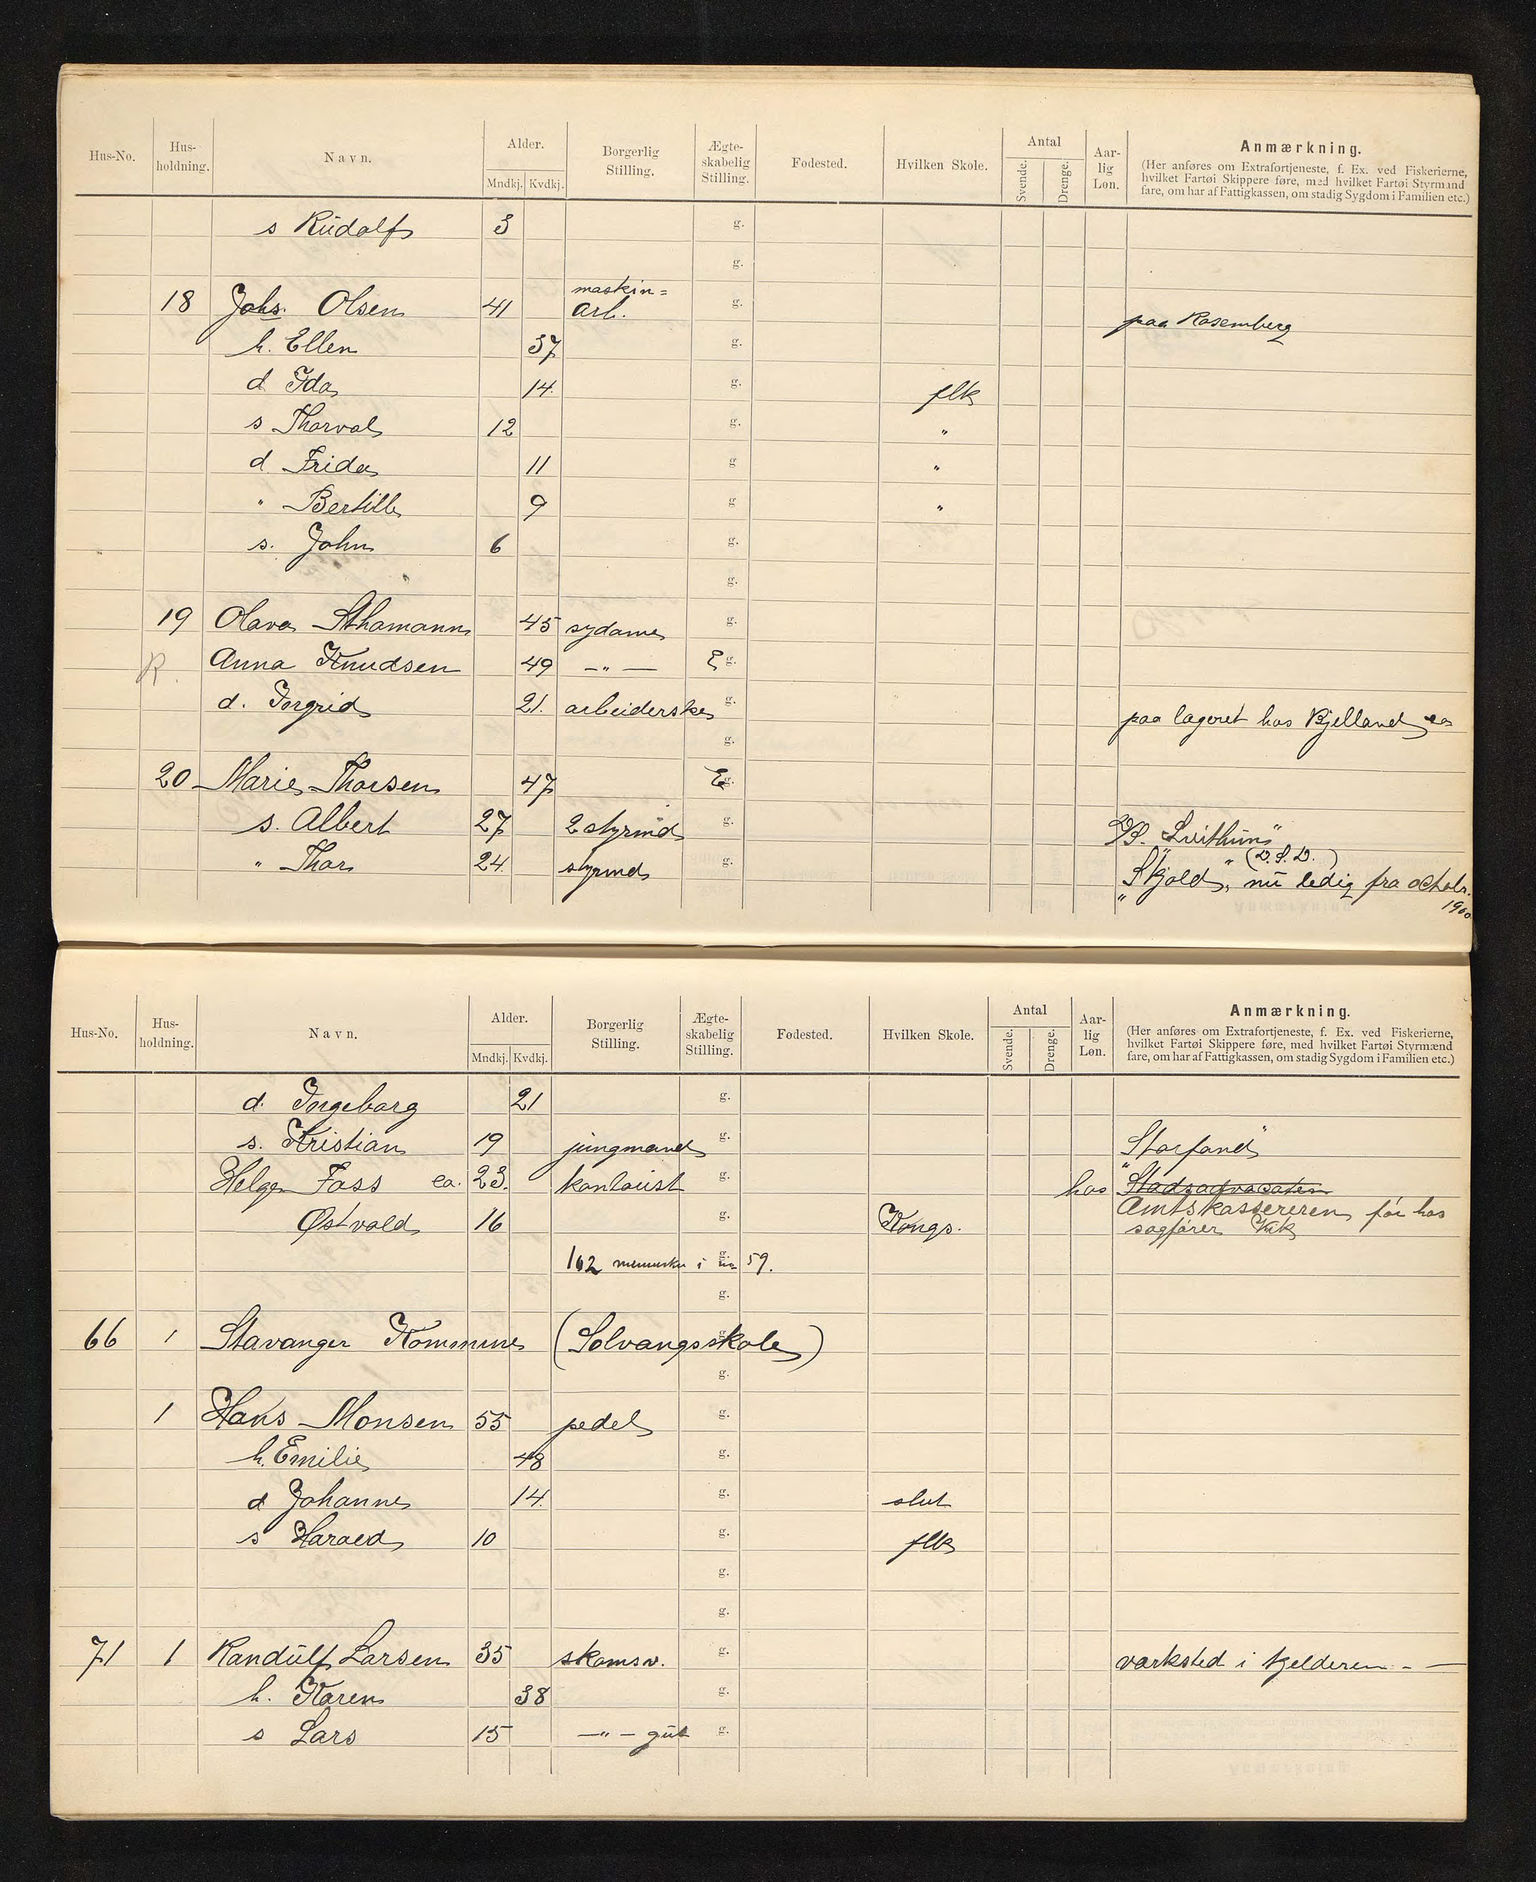 Hus-No. Hus-holdning. Navn. Alder. Mndkj. Kvdkj. Borgerlig Stilling. Ægte-skabelig Stilling. Fødested. Hvilken Skole. Antal Svende. Drenge. Aar-lig Løn. Anmærkning.
(Her anføres om Extrafortjeneste, f. Ex. ved Fiskerierne, hvilket Fartøi Skippere føre, med hvilket Fartøi Styrmænd fare, om har af Fattigkassen, om stadig Sygdom i Familien etc.)
s Rudolf 3 g.
g.
18 Johs. Olsen 41 maskin= arb. g. paa Rosenberg
h. Ellen 37 g.
d Ida 14. g. flk
s Thorval 12 g. "
d Frida 11 g "
" Bertille 9 g "
s. John 6 g.
g.
19 Olava Sthamann 45 sydame g.
R. Anna Knudsen 49 —"— E g.
d. Ingrid 21. arbeiderske g. paa lageret hos Bjelland
g.
20 Marie Thorsen 47 E g.
s. Albert 27 2 styrmd g. D/S. "Svithun"
" Thor 24. styrmd g. (D.S.D.)
"Skjold", nu ledig fra octobr. 1900
Hus-No. Hus-holdning. Navn. Alder. Mndkj. Kvdkj. Borgerlig Stilling. Ægte-skabelig Stilling. Fødested. Hvilken Skole. Antal Svende. Drenge. Aar-lig Løn. Anmærkning.
(Her anføres om Extrafortjeneste, f. Ex. ved Fiskerierne, hvilket Fartøi Skippere føre, med hvilket Fartøi Styrmænd fare, om har af Fattigkassen, om stadig Sygdom i Familien etc.)
d. Ingeborg 21 g.
s. Kristian 19 jungmand g. "Storfond"
Helge Foss ca. 23. kontorist g. hos Stadsadvocaten
Østvold 16 g. Kongs. Amtskassereren, før hos
sagfører
102 mennesker i no 59. g.
g.
66 1 Stavanger Kommune (Solvangsskole) g.
g.
1 Hans Monsen 55 pedel g.
h. Emilie 48 g.
d Johanne 14. g. slut
s Harald 10 g. flk
g.
g.
71 1 Randulf Larsen 35 skomsv. g. varksted i kjelderen - —
h. Karen 38 g.
s Lars 15 —"— gut g.